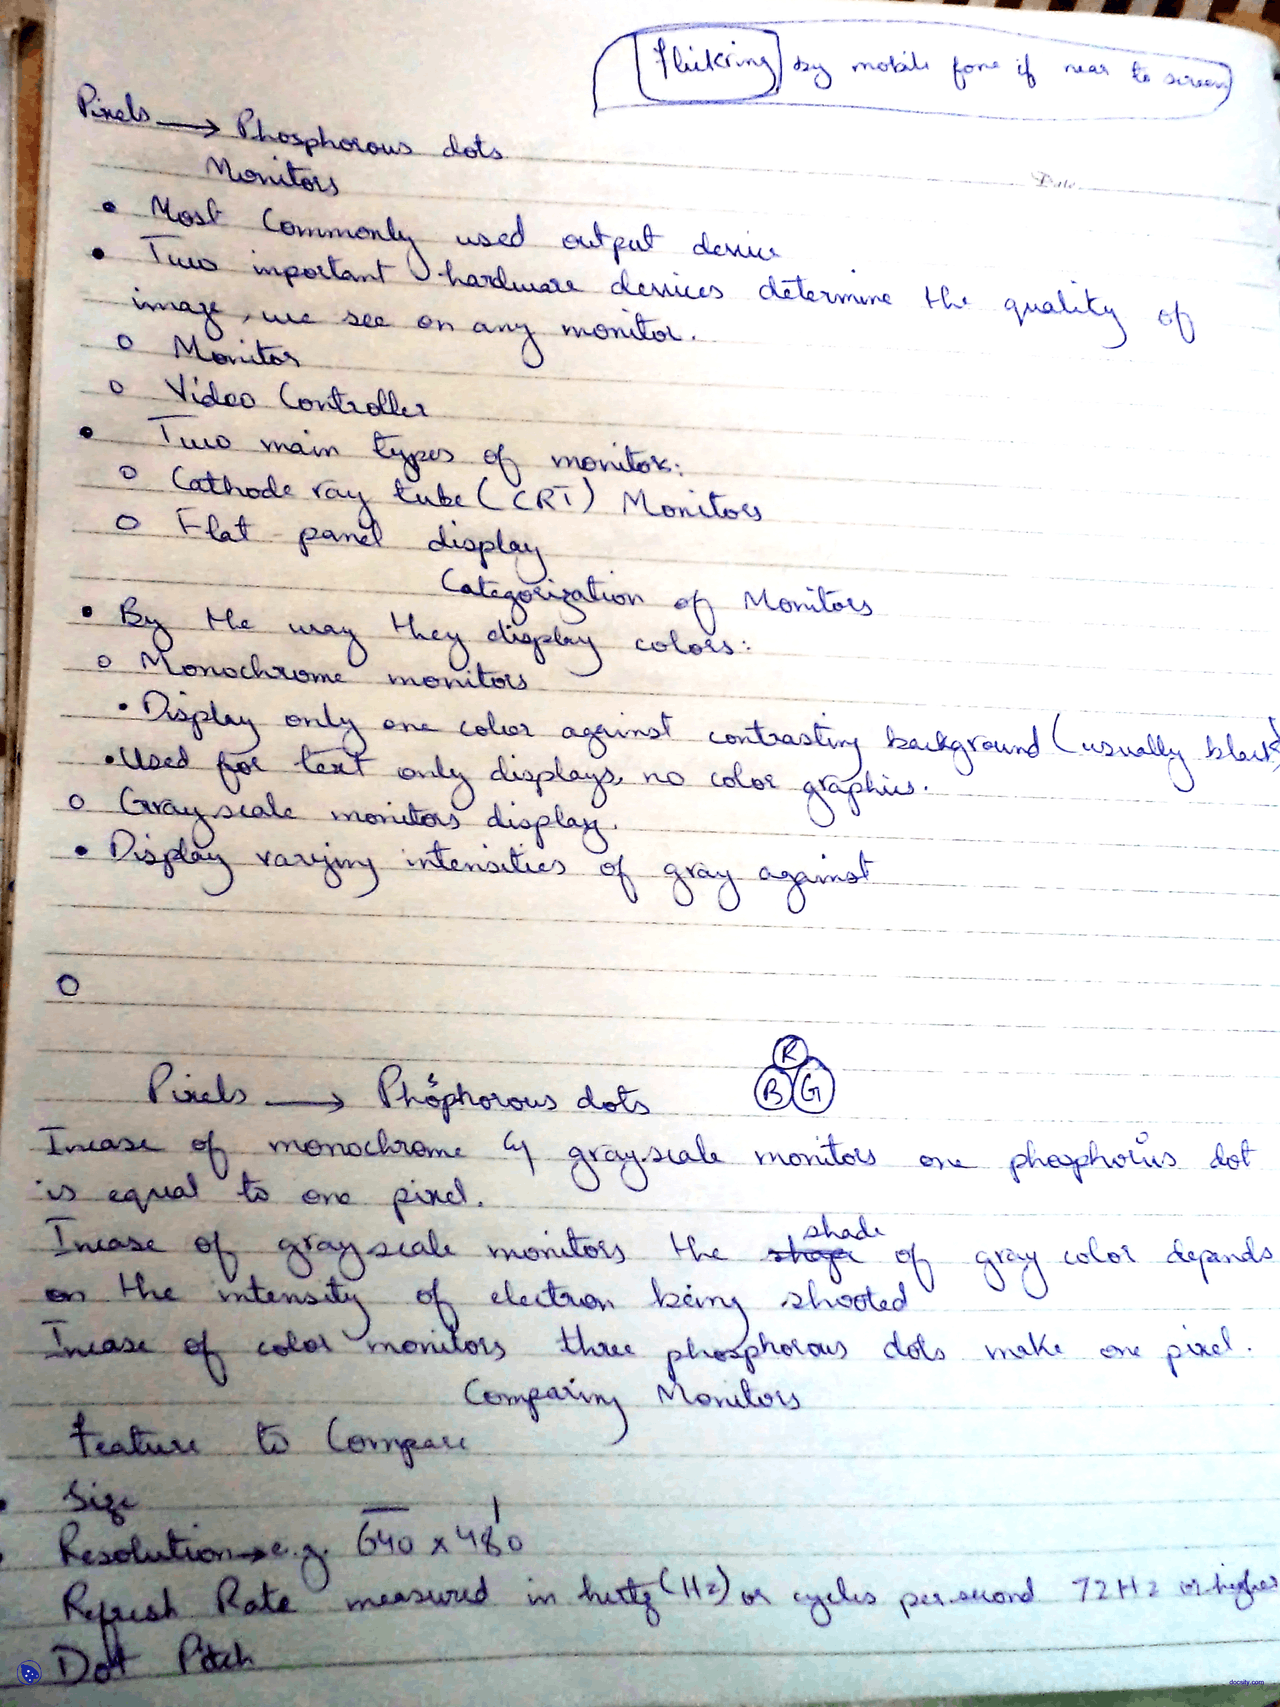 Flickring by mobile fone if near to screen
Pixels → Phosphorous dots
Date
Monitors
• Most Commonly used output device
• Two important hardware devices determine the quality of
image, we see on any monitor.
o Monitor
o Video Controller
• Two main types of monitor:
o Cathode ray tube (CRT) Monitors
o Flat panel display
Categorization of Monitors
• By the way they display colors:
o Monochrome monitors
• Display only one color against contrasting background (usually black)
• Used for text only displays, no color graphics.
o Grayscale monitors display.
• Display varying intensities of gray against
o
R
Pixels → Phosphorous dots B G
Incase of monochrome & grayscale monitors one phosphorous dot
is equal to one pixel.
shade
Incase of grayscale monitors the of gray color depends
on the intensity of electron being shooted
Incase of color monitors three phosphorous dots make one pixel.
Comparing Monitors
Feature to Compare
• Size
• Resolution → e.g. 640 x 480
Refresh Rate measured in hertz (Hz) or cycles per second 72Hz or higher
Dot Pitch
docsity.com